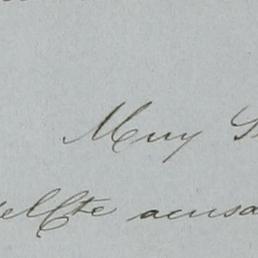 Muy S
elfte acusa